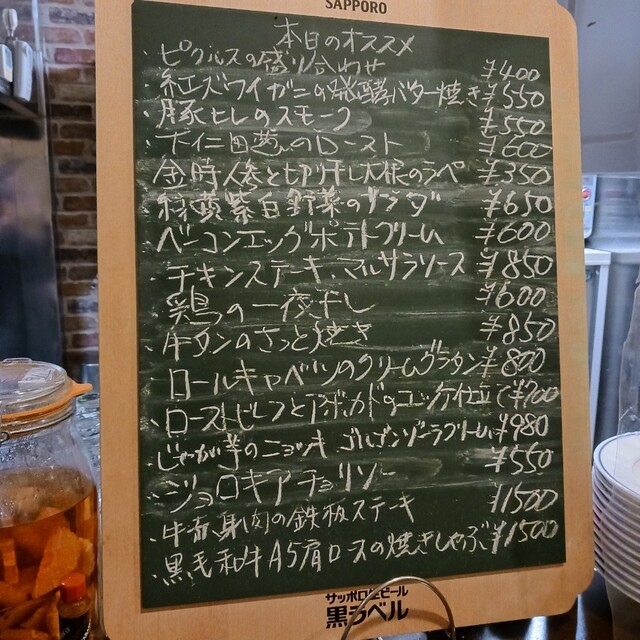 SAPPORO
本日のオススメ
・ピクルスの盛り合わせ ¥400
・紅ズワイガニの発酵バター焼き ¥550
・豚ヒレのスモーク ¥550
・下仁田葱のロースト ¥600
・金時人参と切干し大根のラペ ¥350
・緑黄紫白野菜のサラダ ¥650
・ベーコンエッグポテトクリーム ¥600
・チキンステーキ、マルサラソース ¥850
・鶏の一夜干し ¥600
・牛タンのさっと焼き ¥850
・ロールキャベツのクリームグラタン ¥800
・ローストビーフとアボカドのユッケ仕立て ¥700
・じゃがい芋のニョッキ ゴルゴンゾーラクリーム ¥980
・ジョロキアチョリソー ¥550
・牛赤身肉の鉄板ステーキ ¥1500
・黒毛和牛A5肩ロースの焼きしゃぶ ¥1500
サッポロ生ビール
黒ラベル